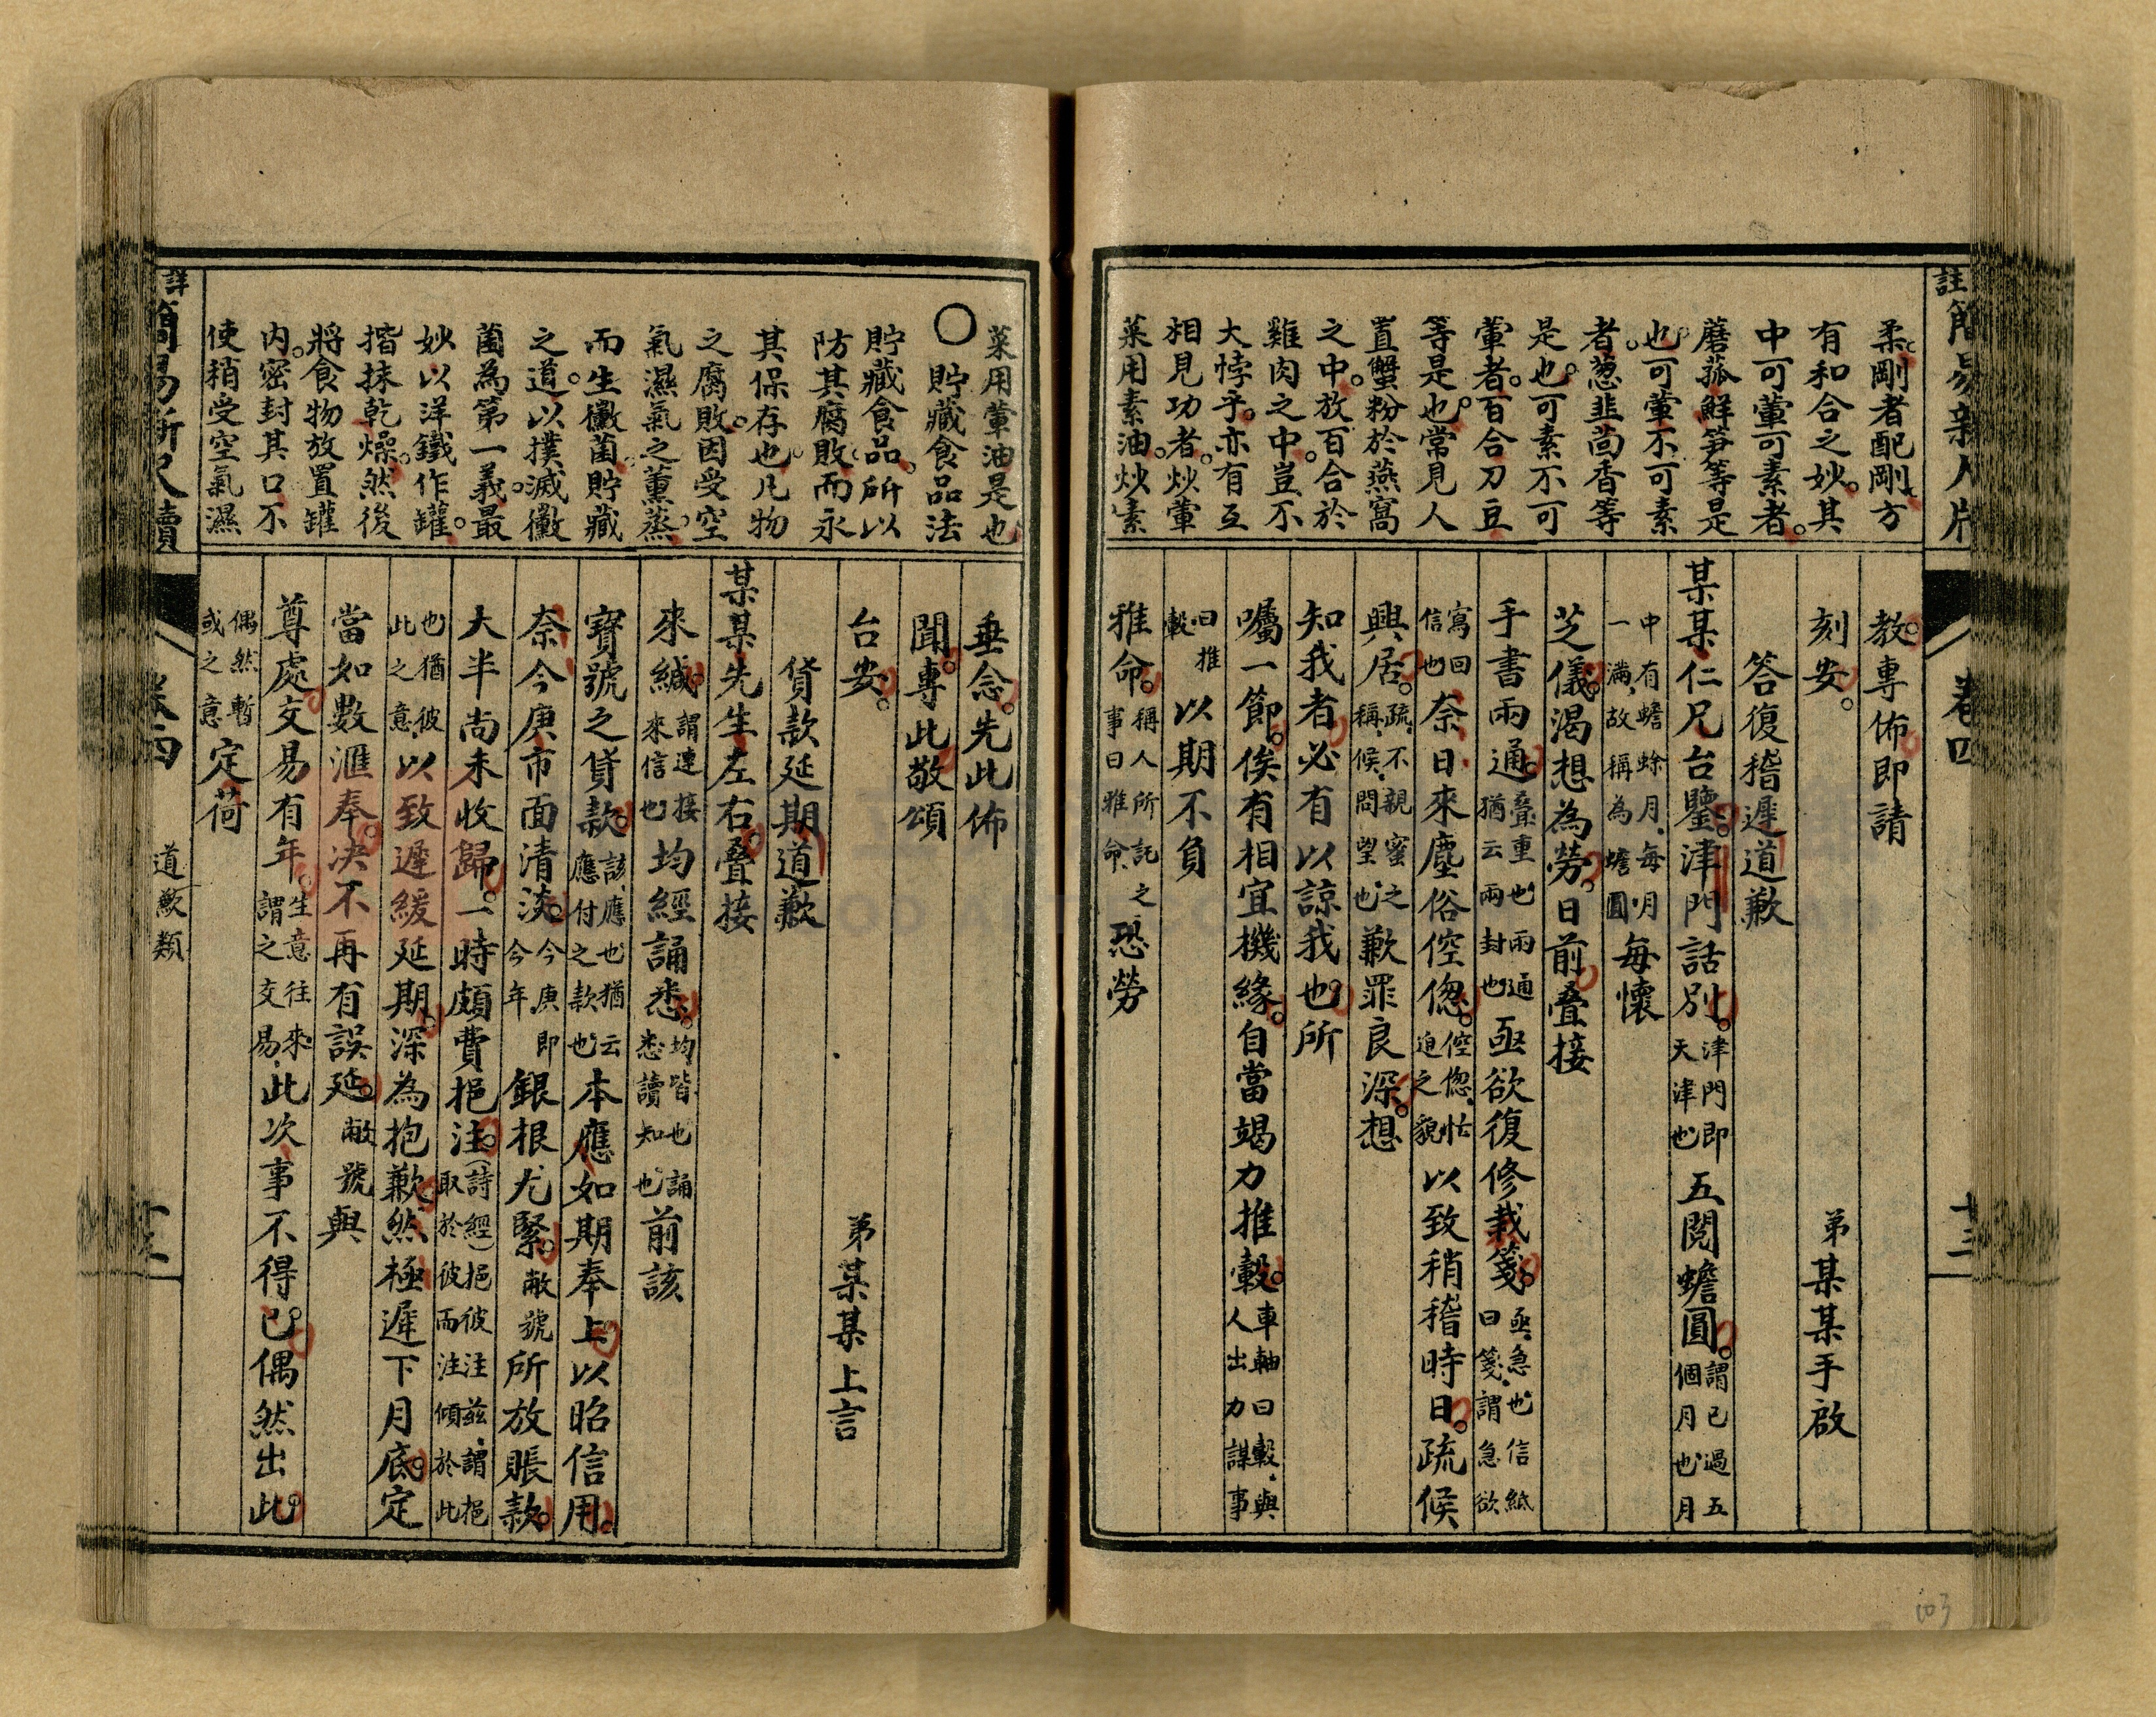 柔剛者配剛方
有和合之妙。其
中可葷可素者。
蘑菰鮮笋等是
也。可葷不可素
者。葱韭茴香等
是也。可素不可
葷者。百合刀豆
等是也。常見人
置蟹粉於燕窩
之中。放百合於
雞肉之中。豈不
大悖乎。亦有互
相見功者。炒葷
菜用素油。炒素
教。專佈即請
刻安。 弟某某手啟
答復稽遲道歉
某某仁兄台鑒。津門話別。津門即天津也五閱蟾圓。謂已過五個月也月
中有蟾蜍月、每月一滿、故稱為蟾圓每懷
芝儀。渴想為勞。日前叠接
手書兩通。叠重也兩通猶云兩封也亟欲復修裁箋。亟、急也信紙曰箋、謂急欲
寫回信也奈日來塵俗倥偬。倥偬、忙迫之貌以致稍稽時日。疏候
興居。疏、不親蜜之稱、候、問望也歉罪良深。想
知我者必有以諒我也。所
囑一節。俟有相宜機緣。自當竭力推轂。車軸曰轂、與人出力謀事
曰推轂以期不負
雅命。稱人所託之事曰雅命、恐勞
註簡易新尺牘
卷四
十三
菜用葷油是也
〇貯藏食品法
貯藏食品。所以
防其腐敗而永
其保存也。凡物
之腐敗。因受空
氣濕氣之薰蒸。
而生黴菌。貯藏
之道。以撲滅黴
菌為第一義。最
妙以洋鐵作罐。
揩抹乾燥。然後
將食物放置罐
內。密封其口。不
使稍受空氣濕
垂念。先此佈
聞。專此敬頌
台安。 弟某某上言
貸款延期道歉
某某先生左右。叠接
來緘。謂連接來信也均經誦悉。均、皆也誦悉、讀知也前該
寶號之貸款。該、應也猶云應付之款也本應如期奉上。以昭信用。
奈今庚市面清淡。今庚即今年銀根尤緊。敝號所放賬款。
大半尚未收歸。一時頗費挹注。(詩經)挹彼注茲、謂挹取於彼而注傾於此
也、猶彼此之意、以致遲緩延期。深為抱歉。然極遲下月底。定
當如數滙奉。决不再有誤延。敝號與
尊處交易有年。生意往來謂之交易、此次事不得已。偶然出此。
偶然暫或之意定荷
詳簡易新尺牘
卷四
道歉類